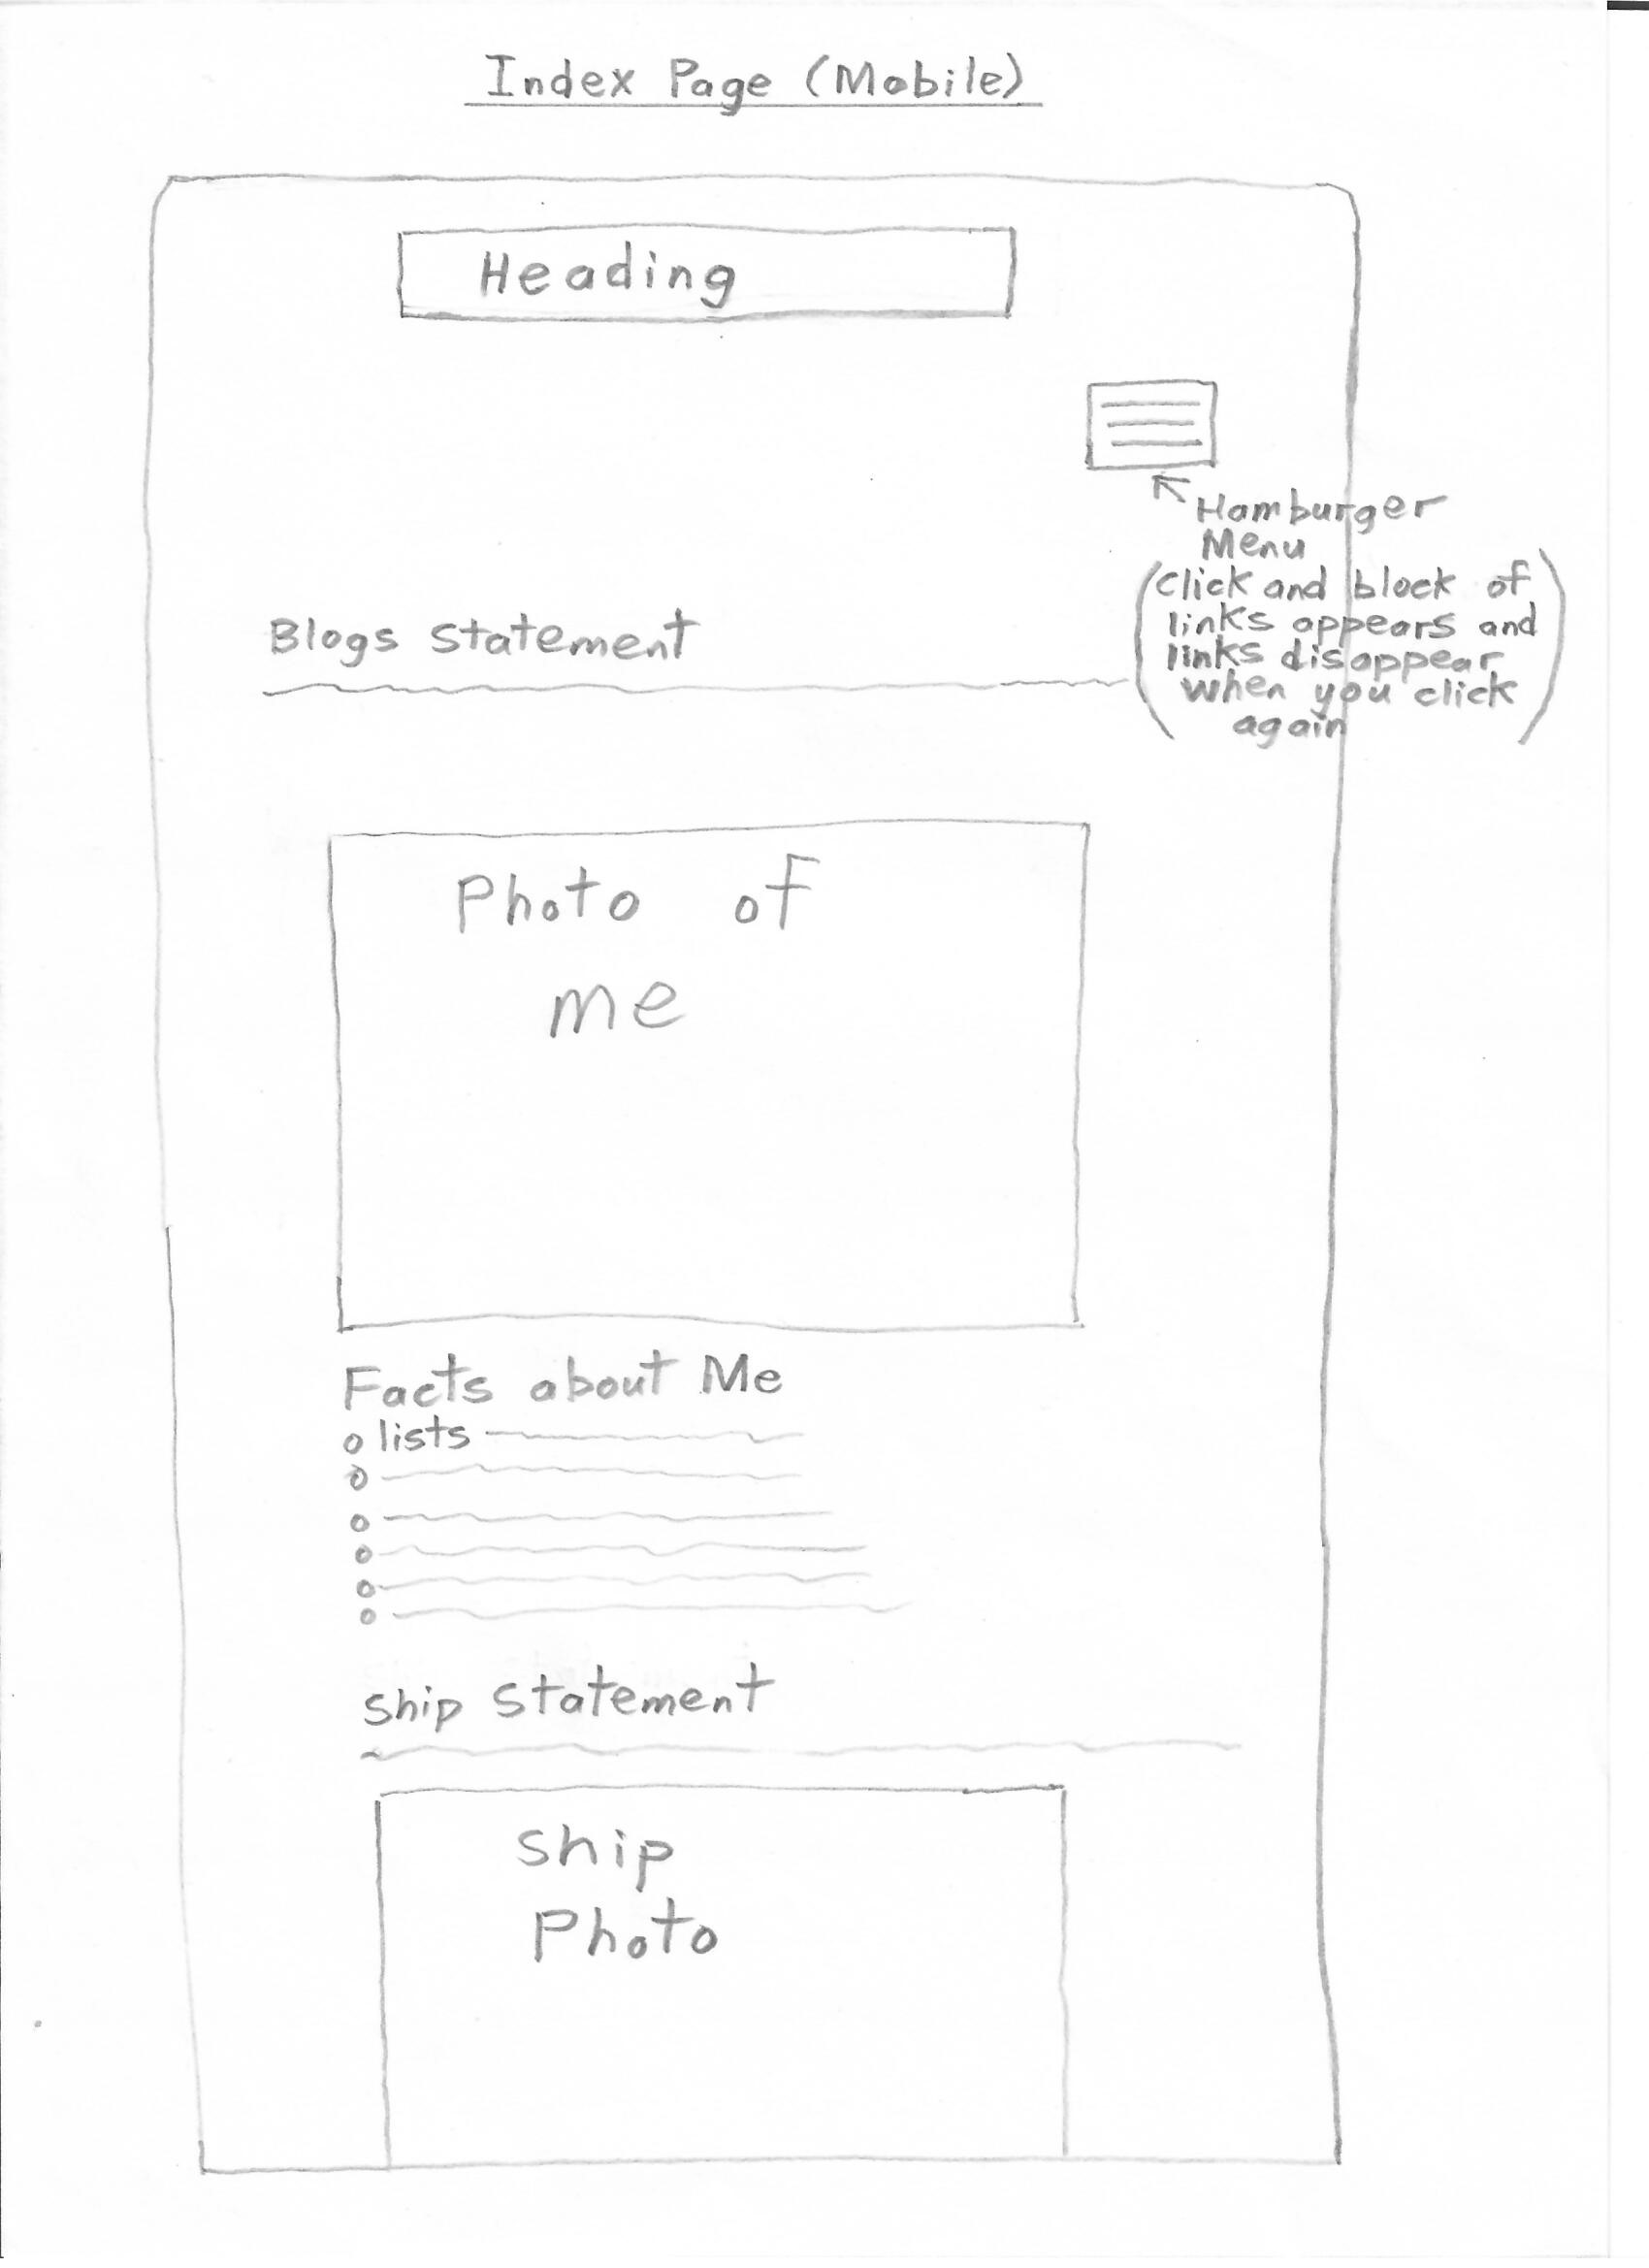 Index Page (Mobile)
Heading
Hamburger
Menu
(click and block of
links appears and
links disappear
when you click
again)
Blogs statement
Photo of
me
Facts about Me
lists
ship statement
ship
Photo